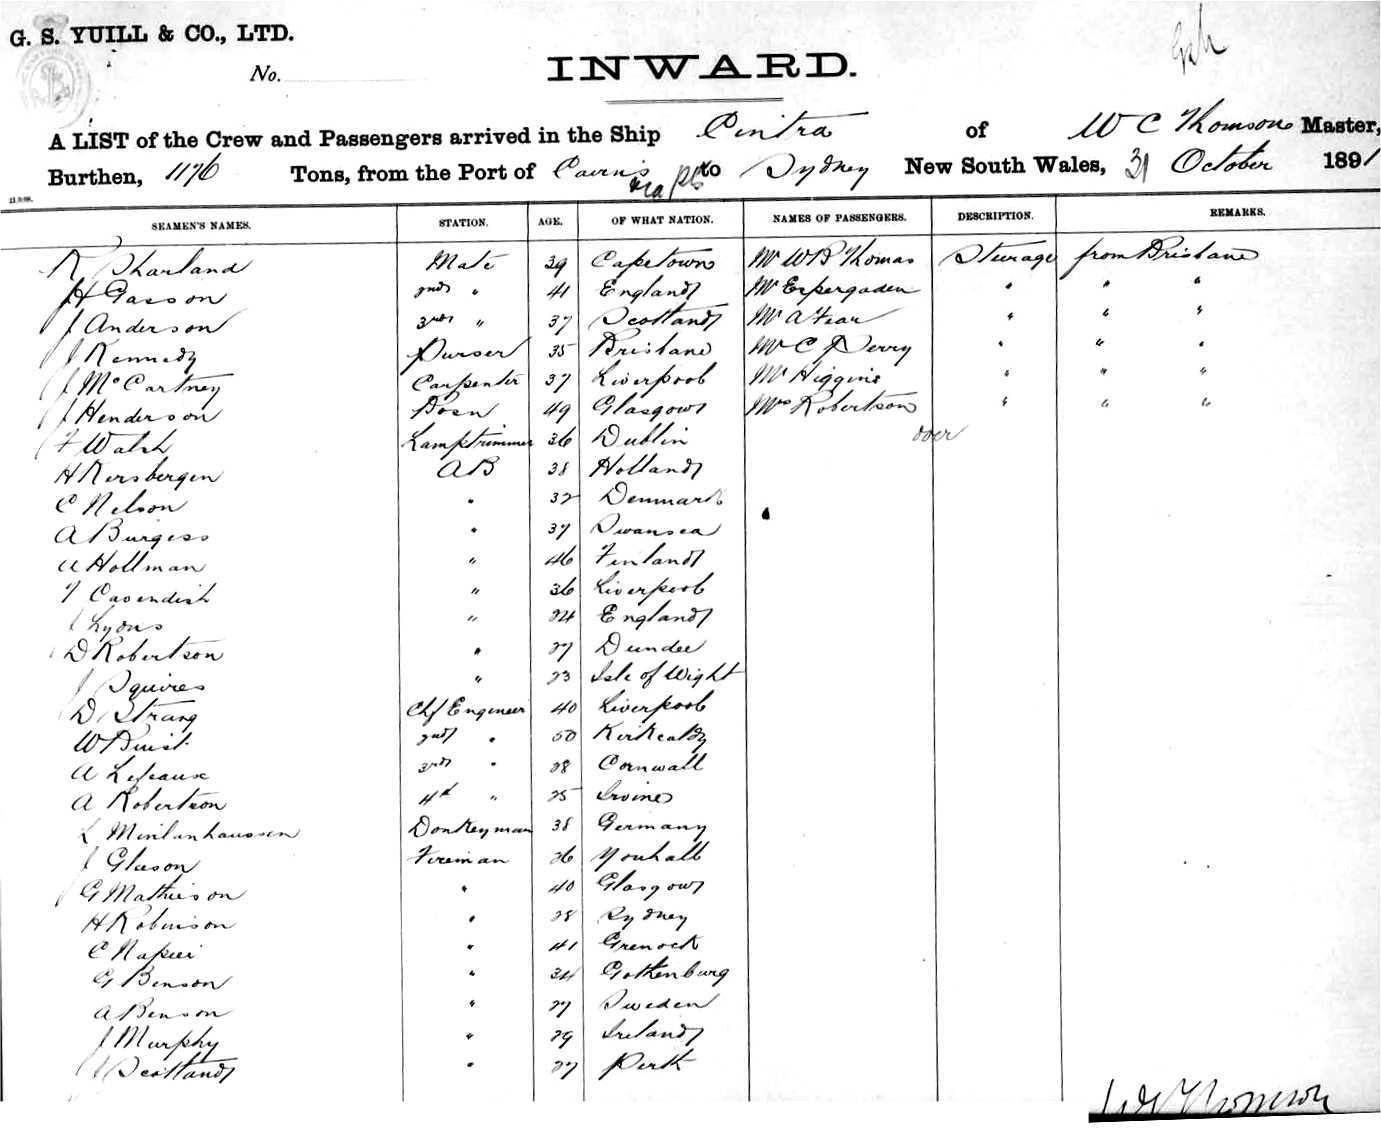 G. S. YUILL & CO., LTD.
No.
INWARD.
A LIST of the Crew and Passengers arrived in the Ship Cintra of W C Thomson Master,
Burthen, 1176 Tons, from the Port of Cairns via pts to Sydney New South Wales, 31 October 1891
SEAMEN'S NAMES. STATION. AGE. OF WHAT NATION. NAMES OF PASSENGERS. DESCRIPTION. REMARKS.
R Sharland Mate 39 Capetown Mr W B Thomas Sturage from Brisbane
H Gasson 2nd " 41 England Mr Espergaden " " "
J Anderson 3rd " 37 Scotland Mr A Fear " " "
J Kennedy Purser 35 Brisbane Mr C Perry " " "
J McCartney Carpenter 37 Liverpool Mr Higgins " " "
J Henderson Bosn 49 Glasgow Mrs Robertson " " "
F Walsh Lamptrimmer 36 Dublin over
H Kersbergen AB 38 Holland
C Nelson " 32 Denmark
A Burgess " 37 Swansea
A Hollman " 46 Finland
T Cavendish " 36 Liverpool
J Lyons " 24 England
D Robertson " 27 Dundee
J Squires " 23 Isle of Wight
D Strang Chf Engineer 40 Liverpool
W Buist 2nd " 50 Kirkcaldy
A Lejeaux 3rd " 28 Cornwall
A Robertson 4th " 25 Irvine
L Donkeyman 38 Germany
J Glason Fireman 26 Youhall
G Mathieson " 40 Glasgow
H Robinson " 28 Sydney
C Napier " 41 Grenock
G Benson " 34 Gothenburg
A Benson " 27 Sweden
J Murphy " 29 Ireland
J Scotland " 27 Perth
W C Thomson